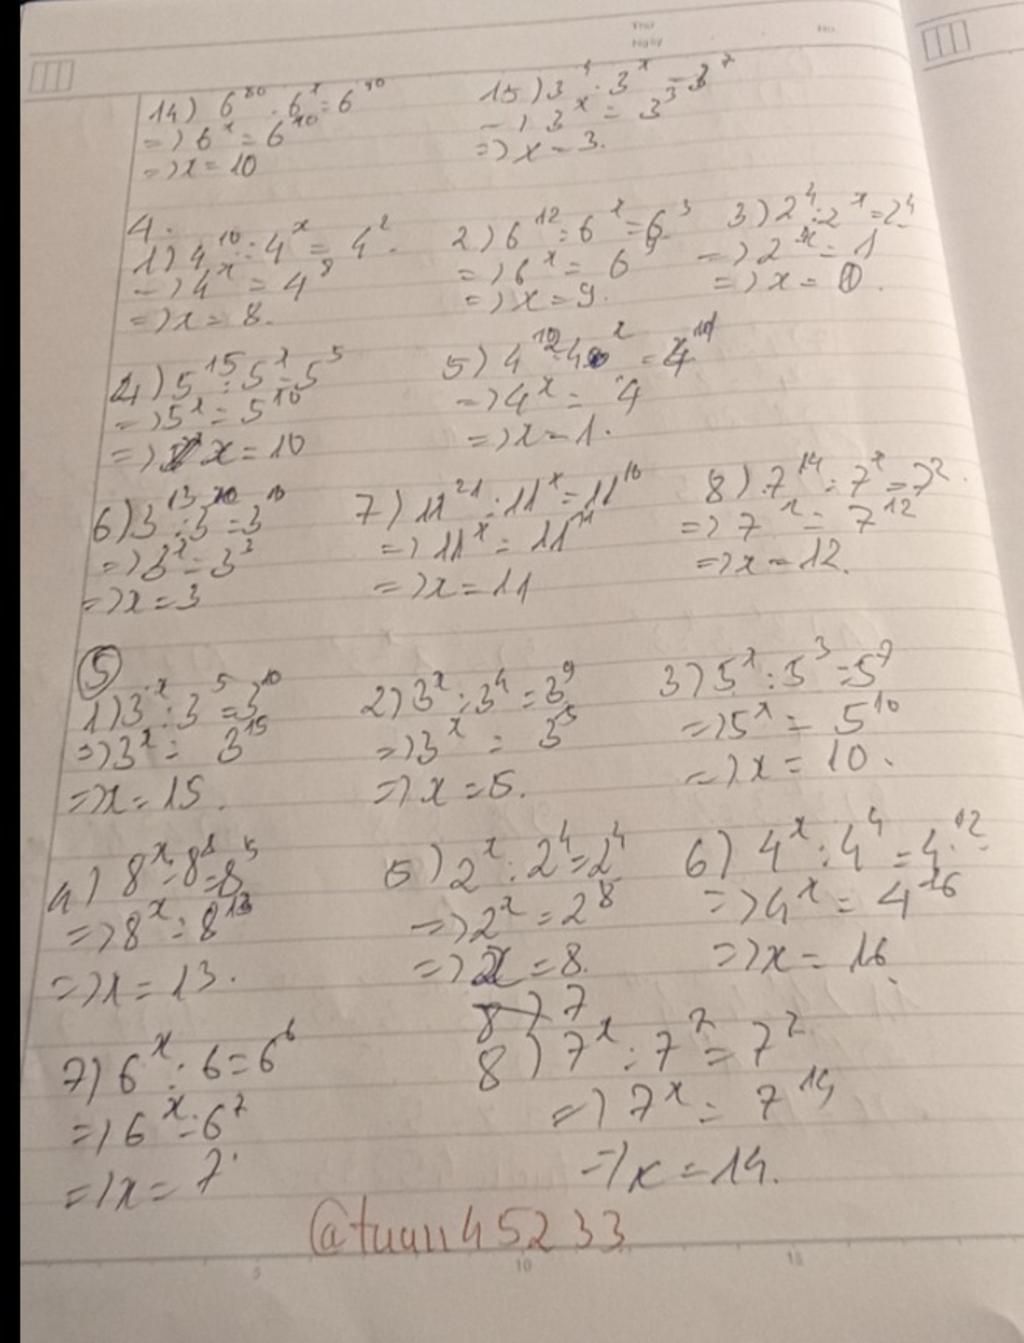 Thứ
Ngày
No.
14) 6^80 . 6^x = 6^90
=> 6^x = 6^10
=> x = 10
15) 3^4 . 3^x = 3^7
=> 3^x = 3^3
=> x = 3.
4.
1) 4^10 : 4^x = 4^2.
=> 4^x = 4^8
=> x = 8.
2) 6^12 : 6^x = 6^3
=> 6^x = 6^9
=> x = 9.
3) 2^4 : 2^x = 2^4
=> 2^x = 1
=> x = 0.
4) 5^15 : 5^x = 5^5
=> 5^x = 5^10
=> x = 10
5) 4^x = 4
=> x = 1.
6) 3^13 : 3^x = 3^10
=> 3^x = 3^3
=> x = 3
7) 11^21 : 11^x = 11^10
=> 11^x = 11^11
=> x = 11
8) 7^14 : 7^x = 7^2.
=> 7^x = 7^12
=> x = 12.
5
1) 3^x : 3^5 = 3^10
=> 3^x = 3^15
=> x = 15.
2) 3^x : 3^4 = 3^9
=> 3^x = 3^5
=> x = 5.
3) 5^x : 5^3 = 5^7
=> 5^x = 5^10
=> x = 10.
4) 8^x : 8^8 = 8^5
=> 8^x = 8^13
=> x = 13.
5) 2^x : 2^4 = 2^4
=> 2^x = 2^8
=> x = 8.
6) 4^x : 4^4 = 4^12
=> 4^x = 4^16
=> x = 16.
7) 6^x : 6 = 6^6
=> 6^x = 6^7
=> x = 7.
8) 7
8) 7^x : 7^2 = 7^2
=> 7^x = 7^14
=> x = 14.
@tuan45233
5 10 15